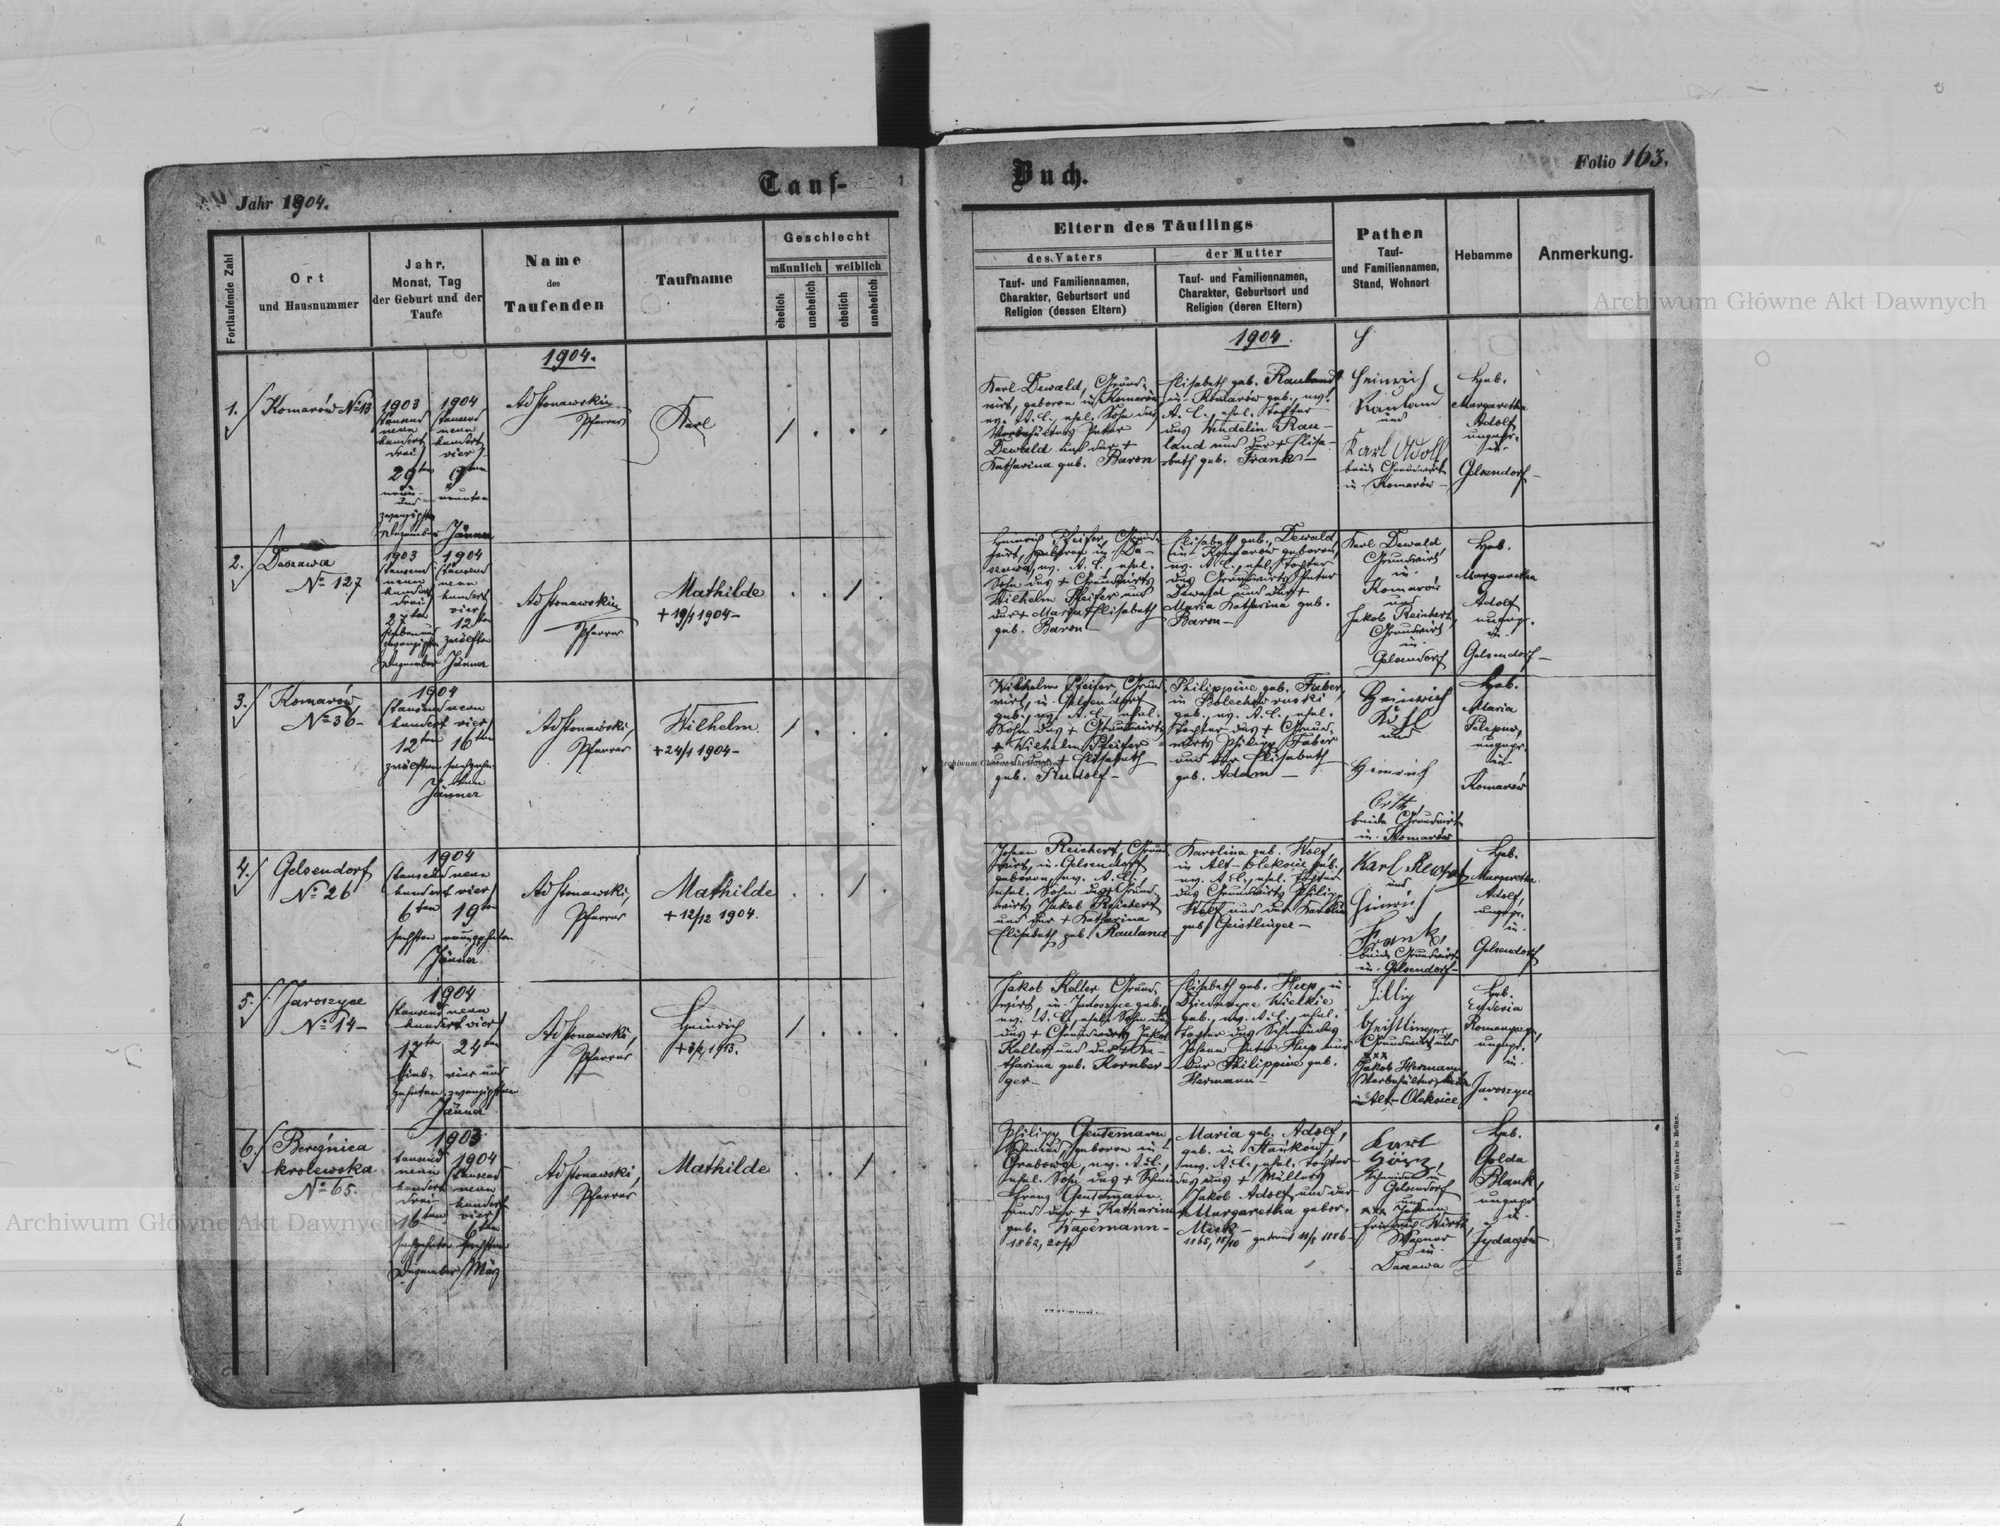 Jahr 1904.
Tauf-
Buch.
Folio 163.
Fortlaufende Zahl
Ort
und Hausnummer
Jahr,
Monat, Tag
der Geburt und der
Taufe
Name
des
Taufenden
Taufname
Geschlecht
männlich
weiblich
ehelich
unehelich
ehelich
unehelich
Eltern des Täuflings
des Vaters
Tauf- und Familiennamen,
Charakter, Geburtsort und
Religion (dessen Eltern)
der Mutter
Tauf- und Familiennamen,
Charakter, Geburtsort und
Religion (deren Eltern)
Pathen
Tauf-
und Familiennamen,
Stand, Wohnort
Hebamme
Anmerkung.
1904.
1904.
1.
Komarów № 13
1903
tausend
neun
hundert
drei
29ten
neun
und
zwanzigsten
Dezember
1904
tausend
neun
hundert
vier
9ten
neunten
Jänner
Pfarrer
Karl
Karl Dewald, Grund-
wirt, geboren in Komarów
ev. A. C., ehel. Sohn des
Peter
Dewald und der +
Katharina geb. Baron
Elisabeth geb. Rauland
in Komarów geb., ev.
A. C., ehel. Tochter
des Wendelin Rau-
land und der + Elisa-
beth geb. Frank –
Heinrich
Rauland
und
Karl Adolf
beide Grundwirte
in Komarów –
Heb.
Margaretha
Adolf
ungepr.
in
Gelsendorf –
2.
Daszawa
№ 127
1903
tausend
neun
hundert
drei
27ten
sieben und
zwanzigsten
Dezember
1904
tausend
neun
hundert
vier
12ten
zwölften
Jänner
Pfarrer
Mathilde
+ 19/1 1904 –
Heinrich Pfeifer, Grund-
wirt, geboren in Da-
szawa, ev. A. C., ehel.
Sohn des + Grundwirts
Wilhelm Pfeifer und
der + Margar. Elisabeth
geb. Baron –
Elisabeth geb. Dewald,
in Komarów geboren,
ev. A. C., ehel. Tochter
des Grundwirts Peter
Dewald und der +
Maria Katharina geb.
Baron –
Karl Dewald
Grundwirt
in
Komarów
und
Jakob Reichert,
Grundwirt
in
Gelsendorf
Heb.
Margaretha
Adolf
ungepr.
in
Gelsendorf –
3.
Komarów
№ 36 –
1904
tausend neun
hundert vier
12ten 16ten
zwölften sechzehn-
ten
Jänner
Pfarrer
Wilhelm
+ 24/1 1904 –
Wilhelm Pfeifer, Grund-
wirt, in Gelsendorf
geb., ev. A. C., ehel.
Sohn des + Grundwirts
+ Wilhelm Pfeifer
und der + Elisabeth
geb. Rudolf –
Philippine geb. Faber,
in Bolechów ruski
geb., ev. A. C., ehel.
Tochter des + Grund-
wirts Philipp Faber
und der Elisabeth
geb. Adam –
Heinrich
und
Heinrich
Orth,
beide Grundwirte
in Komarów
Heb.
Maria
ungepr.
in
Komarów
4.
Gelsendorf
№ 26
1904
tausend neun
hundert vier
6ten 19ten
sechsten neunzehnten
Jänner
Pfarrer
Mathilde
+ 12/12 1904.
Johann Reichert, Grund-
wirt, in Gelsendorf
geboren, ev. A. C.,
ehel. Sohn des Grund-
wirts Jakob Reichert
und der + Katharina
Elisabeth geb. Rauland
Karolina geb. Wolf,
in Alt-Oleksice geb.
ev. A. C., ehel. Tochter
des Grundwirts Philipp
Wolf und der Karolina
geb. Geistlinger –
Karl
und
Heinrich
Frank,
beide Grundwirte
in Gelsendorf –
Heb.
Margaretha
Adolf,
ungepr.
in
Gelsendorf
5.
Jaroszyce
№ 14 –
1904
tausend neun
hundert vier
17ten 24ten
sieb- vier und
zehnten zwanzigsten
Jänner
Pfarrer
Heinrich
Jakob Keller Grund-
wirt, in Jaroszyce geb.,
ev. A. C., ehel. Sohn des
des + Grundwirts Jakob
Keller und der + Ka-
tharina geb. Kornber-
ger –
Elisabeth geb. Heep, in
Wielkie
geb., ev. A. C., ehel.
Tochter des Schmiedes
Johann Peter Heep und
der Philippine geb.
Hermann –
Geistlinger,
Grundwirt und
xxx
Jakob Hermann
in Alt-Oleksice
Heb.
ungepr.
in
Jaroszyce
6.
Bereźnica
królewska
№ 65.
1903
tausend
neun
hundert
drei
16ten
sechzehnten
Dezember
1904
tausend
neun
hundert
vier
6ten
sechsten
März
Pfarrer
Mathilde
Philipp Gentemann,
Schmied, geboren in
ev. A. C.,
ehel. Sohn des + Schmiedes
Franz Gentemann
und der + Katharina
geb. Wagemann –
1862, 20/4
Maria geb. Adolf,
geb. in Stańków,
ev. A. C., ehel. Tochter
des + Müllers
Jakob Adolf und der
+ Margaretha gebor.
1865, 15/10 – getraut 1886 –
Karl
Schmied in
Gelsendorf
und
xxx Johann
Friedrich Wirth,
Wagner
in
Daszawa
Heb.
Golda
Blank,
ungepr.
in
Żydaczów
Druck und Verlag von C. Winiker in Brünn.
Archiwum Główne Akt Dawnych
Archiwum Główne Akt Dawnych